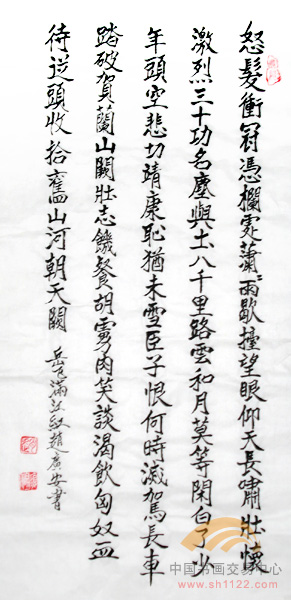 怒髮衝冠憑欄處蕭〻雨歇擡望眼仰天長嘯壯懷
激烈三十功名塵與土八千里路雲和月莫等閑白了少
年頭空悲切靖康恥猶未雪臣子恨何時滅駕長車
踏破賀蘭山闕壯志饑餐胡虜肉笑談渴飲匈奴血
待從頭收拾舊山河朝天闕 岳飛滿江紅趙廣安書
中国书画交易中心
www.sh1122.com